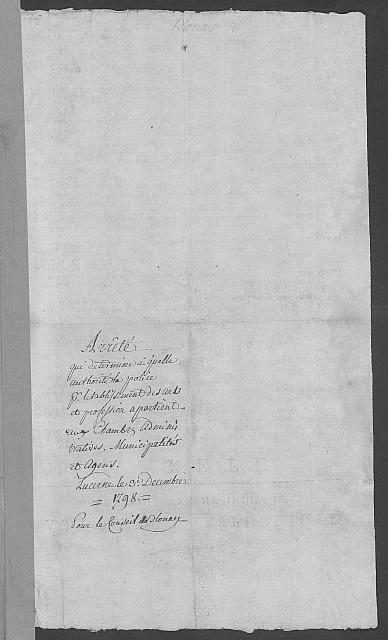 Blonay
Arrêté
qui determine à quelle
authorité la police
pr. l'etablissement des arts
et profession apartient
aux Chambres Adminis
tratives, Municipalités
et Agens.
Lucerne le 3e. Decembre
= 1798 =
Pour le Conseil de Blonay